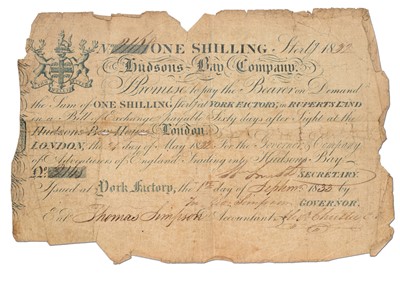 ONE SHILLING. Sterlg 18
Hudsons-Bay Company.
Promise to pay the Bearer on Demand
the Sum of ONE SHILLING Sterlg at YORK FACTORY, in RUPERTS LAND
in a Bill of Exchange payable Sixty days after Sight at the
Hudsons Bay House London
LONDON, the day of May 18 For the Governor & Company
of Adventurers of England trading into Hudsons Bay
No.
SECRETARY
Issued at York Factory, the day of 1833 by
GOVERNOR,
Entd. Thomas Simpson Accountant